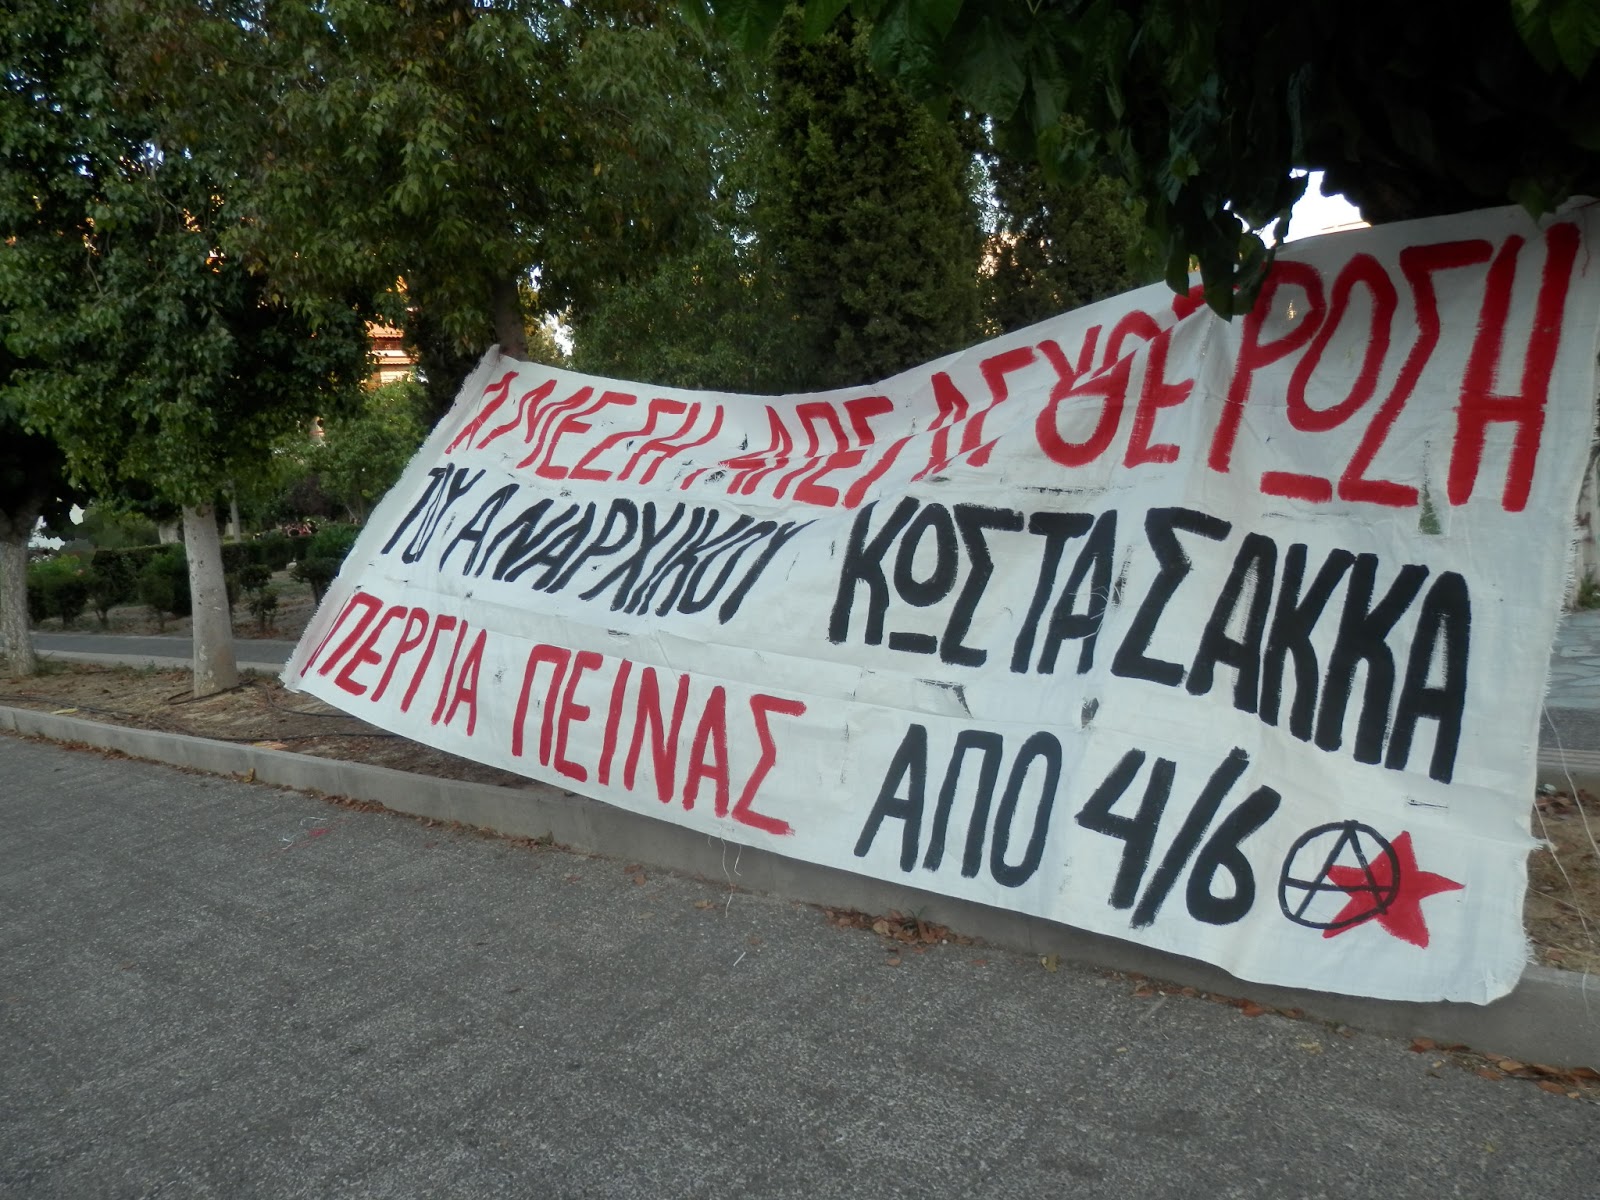 ΑΜΕΣΗ ΑΠΕΛΕΥΘΕΡΩΣΗ
ΤΟΥ ΑΝΑΡΧΙΚΟΥ ΚΩΣΤΑ ΣΑΚΚΑ
ΑΠΕΡΓΙΑ ΠΕΙΝΑΣ ΑΠΟ 4/6